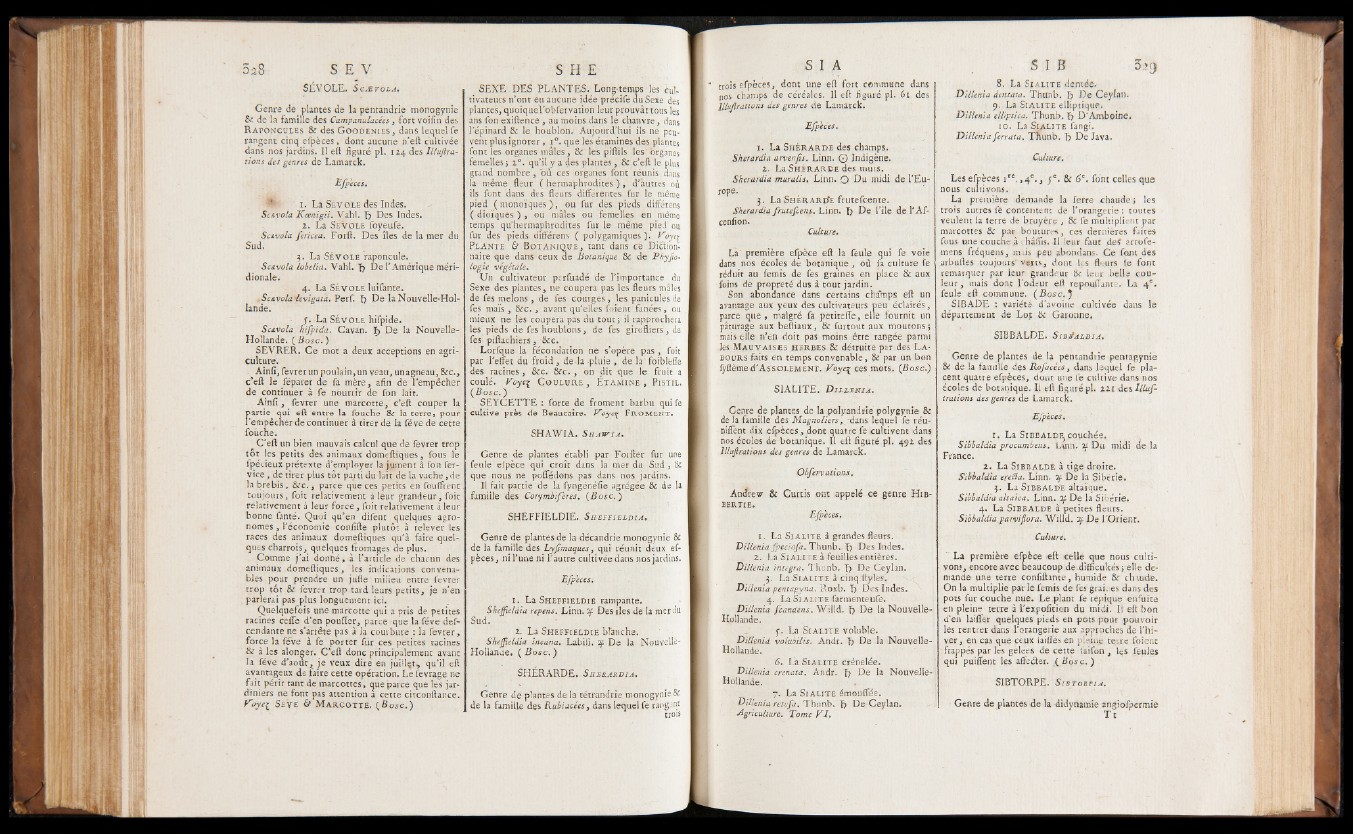 328 S E V
SÉVOLE. SCÆVOLA.
Genre de plantes de la pentandrie monogynie
& de la famille des Campanulacées, fort voisin des
RAPONCULES & des GOODENIES, dans lequel se
rangent cinq espèces, dont aucune n'est cultivée
dans nos jardins. Il est figuré pl. 124 des Illustra-
tions des genres de Lamarck.
Espèces.
1. La SÉVOLE des Indes.
Scævola Kœnigii. Vahl. ♄ Des Indes.
2. La SÉVOLE soyeuse.
Scævola sericea. Forst. Des îles de la mer du
Sud.
3. La SÉVOLE raponcule.
Scævola lobelia. Vahl. ♄ De l'Amérique méri-
dionale.
4. La SÉVOLE luisante.
Scævola levigata. Pers. ♄ De la Nouvelle-Hol-
lande.
5. La SÉVOLE hispide.
Scævola hispida. Cavan. ♄ De la Nouvelle-
Hollande. (Bosc.)
SEVRER. Ce mot a deux acceptions en agri-
culture.
Ainsi, sevrer un poulain, un veau, un agneau, &c.,
c'est le séparer de sa mère, afin de l'empêcher
de continuer à se nourrir de son lait.
Ainsi, sevrer une marcotte, c'est couper la
partie qui est entre la souche & la terre, pour
l'empêcher de continuer à tirer de la séve de cette
souche.
C'est un bien mauvais calcul que de sevrer trop
tôt les petits des animaux domestiques, sous le
spécieux prétexte d'employer la jument à son ser-
vice, de tirer plus tôt parti du lait de la vache, de
la brebis, &c., parce que ces petits en souffrent
toujours, soit relativement à leur grandeur, soit
relativement à leur force, soit relativement à leur
bonne santé. Quoi qu'en disent quelques agro-
nomes, l'économie consiste plutôt à relever les
races des animaux domestiques qu'à faire quel-
ques charrois, quelques fromages de plus.
Comme j'ai donné, à l'article de chacun des
animaux domestiques, les indications convena-
bles pour prendre un juste milieu entre sevrer
trop tôt & sevrer trop tard leurs petits, je n'en
parlerai pas plus longuement ici.
Quelquefois une marcotte qui a pris de petites
racines cesse d'en pousser, parce que la séve des-
cendante ne s'arrête pas à sa courbure : la sevrer,
force la séve à se porter sur ces petites racines
& à les alonger. C'est donc principalement avant
la séve d'août, je veux dire en juillet, qu'il est
avantageux de faire cette opération. Le sevrage ne
fait périr tant de marcottes, que parce que les jar-
diniers ne font pas attention à cette circonstance.
Voyez SEVE & MARCOTTE. (Bosc.)
S H E
SEXE DES PLANTES. Long-temps les cul-
tivateurs n'ont eu aucune idée précise du Sexe des
plantes, quoique l'observation leur prouvât tous les
ans son existence, au moins dans le chanvre, dans
l'épinard & le houblon. Aujourd'hui ils ne peu-
vent plus ignorer, 1°. que les étamines des plantes
sont les organes mâles, & les pistils les organes
femelles; 2°. qu'il y a des plantes, & c'est le plus
grand nombre, où ces organes sont réunis dans
la même fleur (hermaphrodites), d'autres où
ils sont dans des fleurs différentes sur le même
pied (monoïques), ou sur des pieds différens
(dioïques), ou mâles ou femelles en même
temps qu'hermaphrodites sur le même pied ou
sur des pieds différens (polygamiques). Voyez
PLANTE & BOTANIQUE, tant dans ce Diction-
naire que dans ceux de Botanique & de Physio-
logie végétale.
Un cultivateur persuadé de l'importance du
Sexe des plantes, ne coupera pas les fleurs mâles
de ses melons, de ses courges, les panicules de
ses maïs, &c., avant qu'elles soient fanées, ou
mieux ne les coupera pas du tout; il rapprochera
les pieds de ses houblons, de ses girofliers, de
ses pistachiers, &c.
Lorsque la fécondation ne s'opère pas, soit
par l'effet du froid, de la pluie, de la foiblesse
des racines, &c. &c., on dit que le fruit a
coulé. Voyez COULURE, ETAMINE, PISTIL.
(Bosc.)
SEYCETTE : sorte de froment barbu qui se
cultive près de Beaucaire. Voyez FROMENT.
SHAWIA. SHAWIA.
Genre de plantes établi par Forster sur une
seule espèce qui croît dans la mer du Sud, &
que nous ne possédons pas dans nos jardins.
Il fait partie de la syngénésie agrégée & de la
famille des Corymbifères. (Bosc.)
SHEFFIELDIE. SHEFFIELDIA.
Genre de plantes de la décandrie monogynie &
de la famille des Lysimaques, qui réunit deux es-
pèces, ni l'une ni l'autre cultivée dans nos jardins.
Espèces.
1. La SHEFFIELDIE rampante.
Sheffieldia repens. Linn. ♃ Des îles de la mer du
Sud.
2. La SHEFFIELDIE blanche.
Sheffieldia incana. Labill. ♃ De la Nouvelle-
Hollande. (Bosc.)
SHÉRARDE. SHERARDIA.
Genre de plantes de la tétrandrie monogynie &
de la famille des Rubiacées, dans lequel se rangent
trois
S I A
trois espèces, dont une est fort commune dans
nos champs de céréales. Il est figuré pl. 61 des
Illustrations des genres de Lamarck.
Espèces.
1. La SHÉRARDE des champs.
Sherardia arvensis. Linn. ⊙ Indigène.
2. La SHÉRARDE des murs.
Sherardia muralis. Linn. ⊙ Du midi de l'Eu-
rope.
3. La SHÉRARDE frutescente.
Sherardia frutescens. Linn. ♄ De l'île de l'As-
cension.
Culture.
La première espèce est la seule qui se voie
dans nos écoles de botanique, où sa culture se
réduit au semis de ses graines en place & aux
soins de propreté dus à tout jardin.
Son abondance dans certains champs est un
avantage aux yeux des cultivateurs peu éclairés,
parce que, malgré sa petitesse, elle fournit un
pâturage aux bestiaux, & surtout aux moutons;
mais elle n'en doit pas moins être rangée parmi
les MAUVAISES HERBES & détruite par des LA-
BOURS faits en temps convenable, & par un bon
système d'ASSOLEMENT. Voyez ces mots. (Bosc.)
SIALITE. DILLENIA.
Genre de plantes de la polyandrie polygynie &
de la famille des Magnoliers, dans lequel se réu-
nissent dix espèces, dont quatre se cultivent dans
nos écoles de botanique. Il est figuré pl. 492 des
Illustrations des genres de Lamarck.
Observations.
Andrew & Curtis ont appelé ce genre HIB-
BERTIE.
Espèces.
1. La SIALITE à grandes fleurs.
Dillenia speciosa. Thunb. ♄ Des Indes.
2. La SIALITE à feuilles entières.
Dillenia integra. Thunb. ♄ De Ceylan.
3. La SIALITE à cinq styles.
Dillenia pentagyna. Roxb. ♄ Des Indes.
4. La SIALITE sarmenteuse.
Dillenia scandens. Willd. ♄ De la Nouvelle-
Hollande.
5. La SIALITE voluble.
Dillenia volubilis. Andr. ♄ De la Nouvelle-
Hollande.
6. La SIALITE crénelée.
Dillenia crenata. Andr. ♄ De la Nouvelle-
Hollande.
7. La SIALITE émoussée.
Dillenia retusa. Thunb. ♄ De Ceylan.
Agriculture. Tome VI.
S I B 329
8. La SIALITE dentée.
Dillenia dentata. Thunb. ♄ De Ceylan.
9. La SIALITE elliptique.
Dillenia elliptica. Thunb. ♄ D'Amboine.
10. La SIALITE sangi.
Dillenia serrata. Thunb. ♄ De Java.
Culture.
Les espèces 1re., 4e., 5e. & 6e. sont celles que
nous cultivons.
La première demande la serre chaude; les
trois autres se contentent de l'orangerie : toutes
veulent la terre de bruyère, & se multiplient par
marcottes & par boutures, ces dernières faites
sous une couche à châssis. Il leur faut des arrose-
mens fréquens, mais peu abondans. Ce sont des
arbustes toujours verts, dont les fleurs se font
remarquer par leur grandeur & leur belle cou-
leur, mais dont l'odeur est repoussante. La 4e.
seule est commune. (Bosc.)
SIBADE : variété d'avoine cultivée dans le
département de Lot & Garonne.
SIBBALDE. SIBBALDIA.
Genre de plantes de la pentandrie pentagynie
& de la famille des Rosacées, dans lequel se pla-
cent quatre espèces, dont une se cultive dans nos
écoles de botanique. Il est figuré pl. 221 des Illus-
trations des genres de Lamarck.
Espèces.
1. La SIBBALDE couchée.
Sibbaldia procumbens. Linn. ♃ Du midi de la
France.
2. La SIBBALDE à tige droite.
Sibbaldia erecta. Linn. ♃ De la Sibérie.
3. La SIBBALDE altaïque.
Sibbaldia altaica. Linn. ♃ De la Sibérie.
4. La SIBBALDE à petites fleurs.
Sibbaldia parviflora. Willd. ♃ De l'Orient.
Culture.
La première espèce est celle que nous culti-
vons, encore avec beaucoup de difficultés; elle de-
mande une terre consistante, humide & chaude.
On la multiplie par le semis de ses graines dans des
pots sur couche nue. Le plant se repique ensuite
en pleine terre à l'exposition du midi. Il est bon
d'en laisser quelques pieds en pots pour pouvoir
les rentrer dans l'orangerie aux approches de l'hi-
ver, en cas que ceux laissés en pleine terre soient
frappés par les gelées de cette saison, les seules
qui puissent les affecter. (Bosc.)
SIBTORPE. SIBTORPIA.
Genre de plantes de la didynamie angiospermie
T t